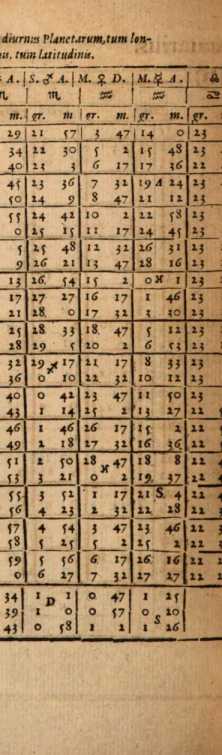 diurnus Planetarum, tum lon-
nis, tum Latitudinis.
A. | S. ♂ A. | M. ♀ D. | M. ☿ A. | ☊
♏ | ♏ | ♒ | ♒ | ♎
m. | gr. m | gr. m. | gr. m. | gr.
29 | 21 57 | 3 47 | 14 0 | 23
34 | 22 30 | 5 2 | 15 48 | 23
40 | 23 3 | 6 17 | 17 36 | 22
45 | 23 36 | 7 32 | 19 A 24 | 23
50 | 24 9 | 8 47 | 21 12 | 23
55 | 24 42 | 10 2 | 22 58 | 23
0 | 25 15 | 11 17 | 24 45 | 23
5 | 25 48 | 12 32 | 26 31 | 23
9 | 26 21 | 13 47 | 28 16 | 23
13 | 26 54 | 15 2 | 0 ♓ 1 | 23
17 | 27 27 | 16 17 | 1 46 | 23
21 | 28 0 | 17 32 | 3 30 | 23
25 | 28 33 | 18 47 | 5 12 | 23
28 | 29 5 | 20 2 | 6 53 | 23
32 | 29 ♐ 17 | 21 17 | 8 33 | 23
36 | 0 10 | 22 32 | 10 12 | 23
40 | 0 42 | 23 47 | 11 50 | 23
43 | 1 14 | 25 2 | 13 27 | 22
46 | 1 46 | 26 17 | 15 2 | 22
49 | 2 18 | 27 32 | 16 36 | 22
51 | 2 50 | 28 ♓ 47 | 18 8 | 22
53 | 3 21 | 0 2 | 19 37 | 22
55 | 3 52 | 1 17 | 21 S 4 | 22
56 | 4 23 | 2 32 | 22 28 | 22
57 | 4 54 | 3 47 | 23 46 | 22
58 | 5 25 | 5 2 | 25 2 | 22
59 | 5 56 | 6 17 | 26 16 | 22
0 | 6 27 | 7 32 | 27 27 | 22
34 | 1 D 1 | 0 47 | 1 25
39 | 1 0 | 0 57 | 0 20
43 | 0 58 | 1 2 | 1 S 26